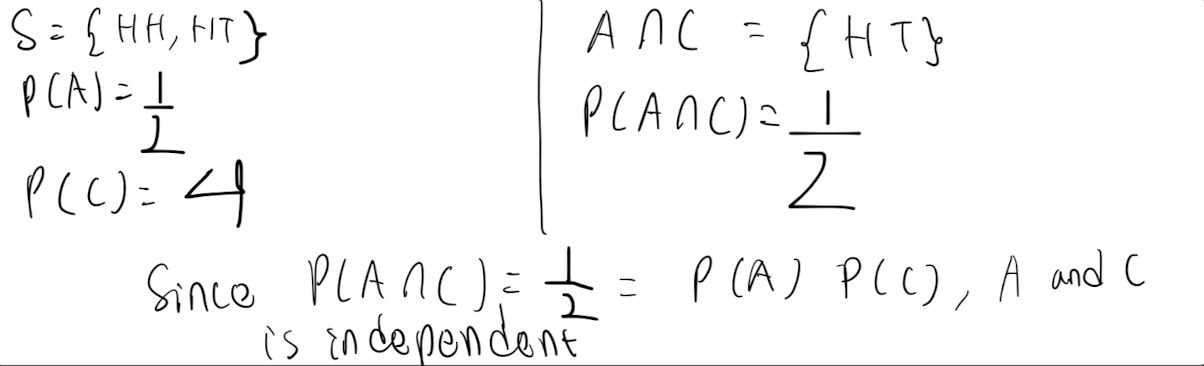 S = {HH, HT}
P(A) = 1/2
P(C) = 4
A ∩ C = {HT}
P(A ∩ C) = 1/2
Since P(A ∩ C) = 1/2 = P(A) P(C), A and C
is independent